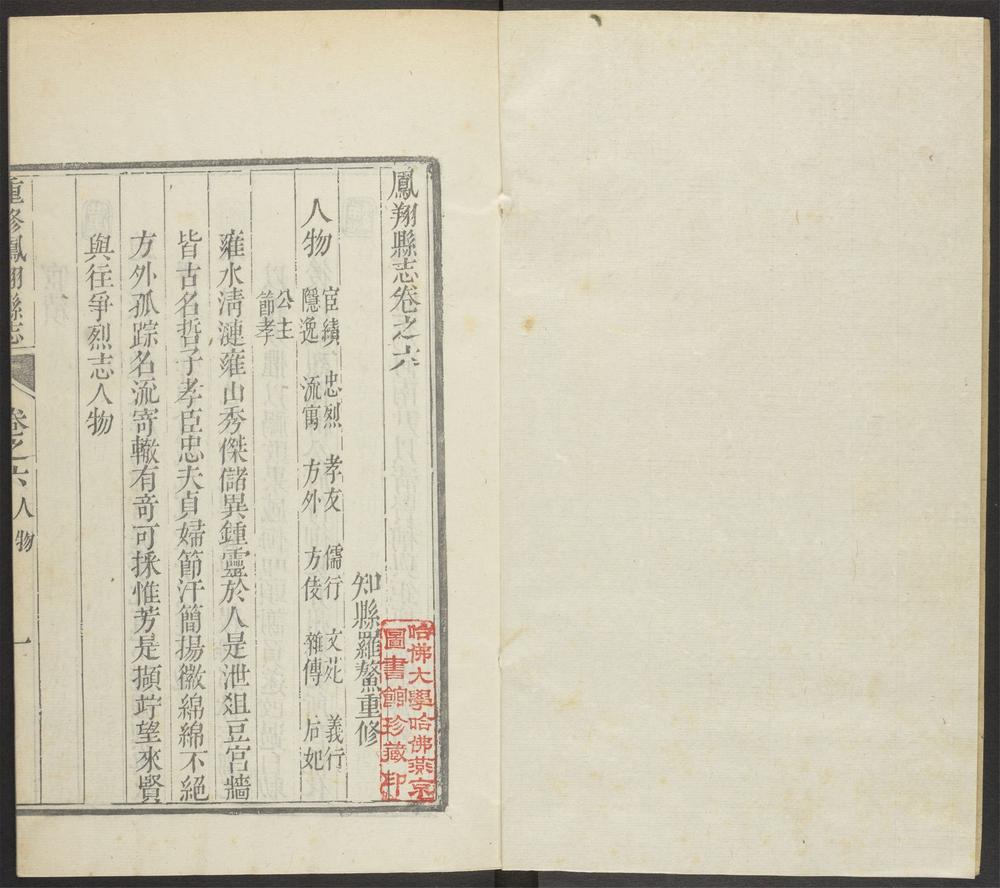 鳳翔縣志卷之六
知縣羅鰲重修
人物
宦績 忠烈 孝友 儒行 文苑 義行
隱逸 流寓 方外 方伎 雜傳 后妃
公主
節孝
雍水淸漣雍山秀傑儲異鍾靈於人是泄俎豆宮牆
皆古名哲子孝臣忠夫貞婦節汗簡揚徽綿綿不絕
方外孤踪名流寄轍有竒可採惟芳是擷竚望來賢
與往爭烈志人物
重修鳳翔縣志
卷之六
人物
一
哈佛大學哈佛燕京
圖書館珍藏印